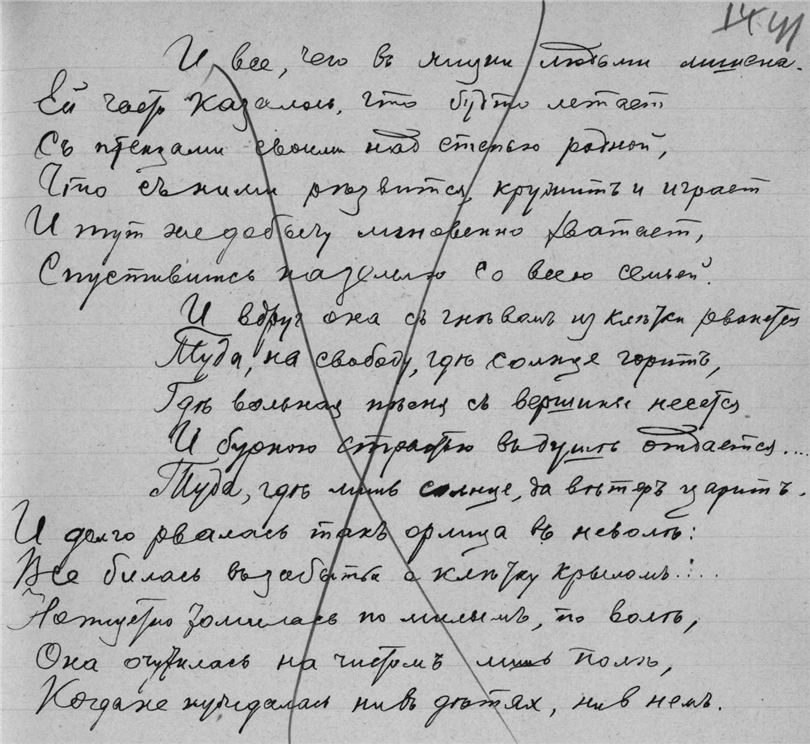 И все, чего въ жизни людьми лишена.
Ей часто казалось, что будто летает
Съ птенцами своими над степью родной,
Что съ ними рѣзвится, кружитъ и играет
И тут же добычу мгновенно хватает,
Спустившись на землю со всею семьей.
И вдруг она съ гнѣвомъ из клѣтки рванется
Туда, на свободу, гдѣ солнце горитъ,
Гдѣ вольная пѣсня съ вершины несется
И бурною страстью въ душѣ отдается...
Туда, гдѣ лишь солнце, да вѣтеръ царитъ.
И долго рвалась такъ орлица въ неволѣ:
Все билась въ забытьи о клѣтку крыломъ...
Но тщетно томилась по милымъ, по волѣ,
Она очутилась на чистомъ лишь полѣ,
Когда не нуждалась ни въ дѣтях, ни в немъ.